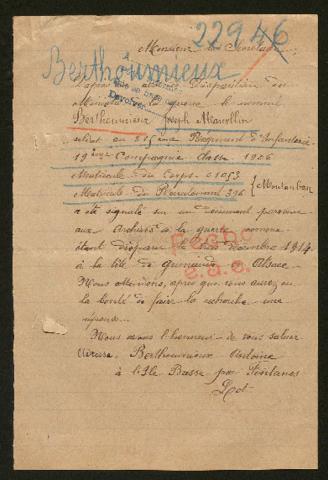 22946
Monsieur le Secrétaire
Berthoumieux
D'après avis Disparition du
Ministre de la guerre le nommé
Berthoumieux Joseph Marcellin
soldat au 215ème Régiment d'Infanterie
19ème Compagnie Classe 1906
Matricule du Corps - 01053
Matricule du Recrutement 396 { Montauban
a été signalé sur un document parvenu
aux Archives de la guerre comme
étant disparu le trois décembre 1914
à la côte de Alsace
Recho
e.a.c.
Nous attendons, après que vous aurez eu
la bonté de faire la recherche une
réponse.
Nous avons l'honneur de vous saluer
Berthoumieux Antoine
à l'Ile Basse par
Lot